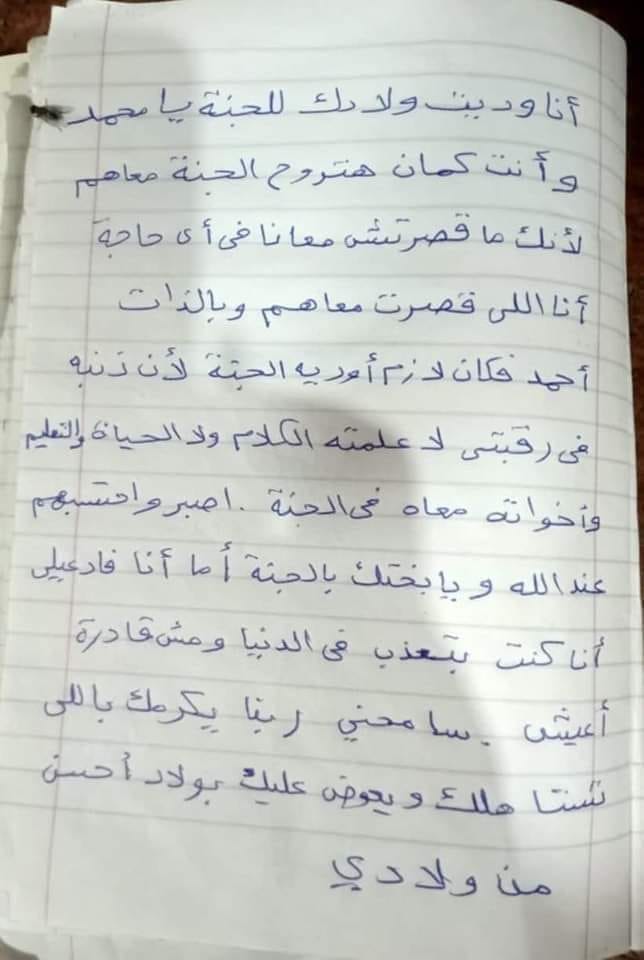 أنا وديت ولادك للجنة يا محمد
وأنت كمان هتروح الجنة معاهم
لأنك ما قصرتش معانا في أى حاجة
أنا اللى قصرت معاهم وبالذات
أحمد فكان لازم أوريه الجنة لأن ذنبه
فى رقبتى لا علمته الكلام ولا الحياة والتعليم
وأخواته معاه فى الجنة . اصبر واحتسبهم
عند الله ويا بختك بالجنة أما أنا فادعيلى
أنا كنت بتعذب فى الدنيا ومش قادرة
أعيش . سامحني ربنا يكرمك باللى
تستاهلك ويعوض عليك بولاد أحسن
من ولادي